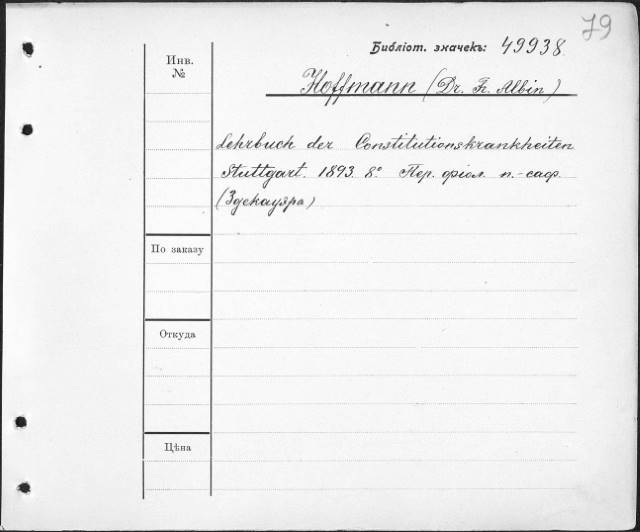 79
Библіот. значекъ: 49938
Инв. №
Hoffmann (Dr. Fr. Albin)
Lehrbuch der Constitutionskrankheiten
Stuttgart. 1893. 8º. Пер. фіол. п.-саф.
(Здекауэра)
По заказу
Откуда
Цѣна